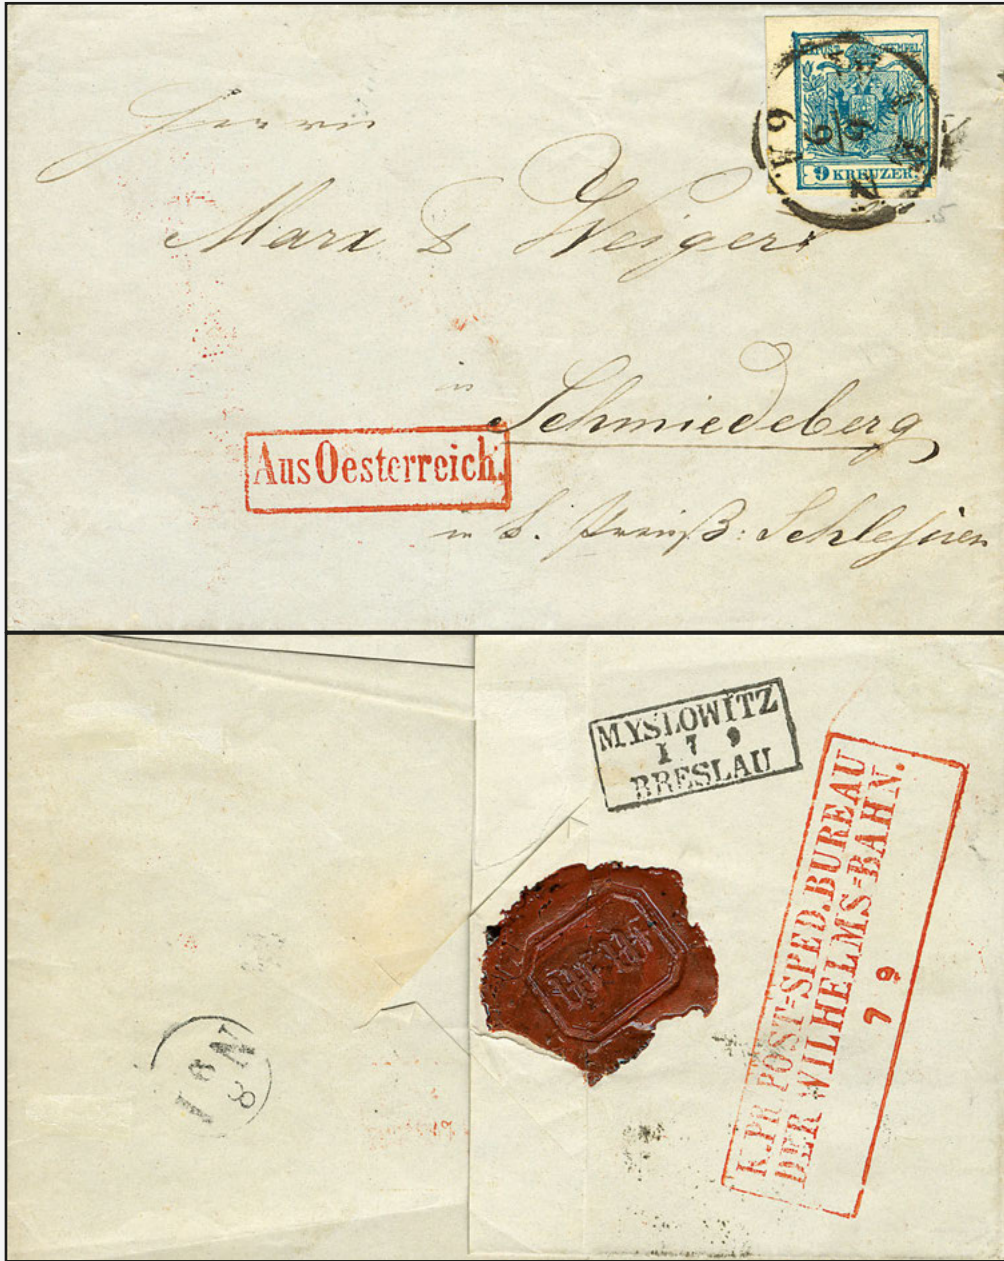 KREUZER.
9 KREUZER.
WIEN
6
9
Herrn
Marx & Weigert
in
Schmiedeberg
Aus Oesterreich.
in k. Preuß: Schlesien
MYSLOWITZ
I 7 9
BRESLAU
K.PR POST=SPED.BUREAU
DER WILHELMS=BAHN.
7 9
N 8 I